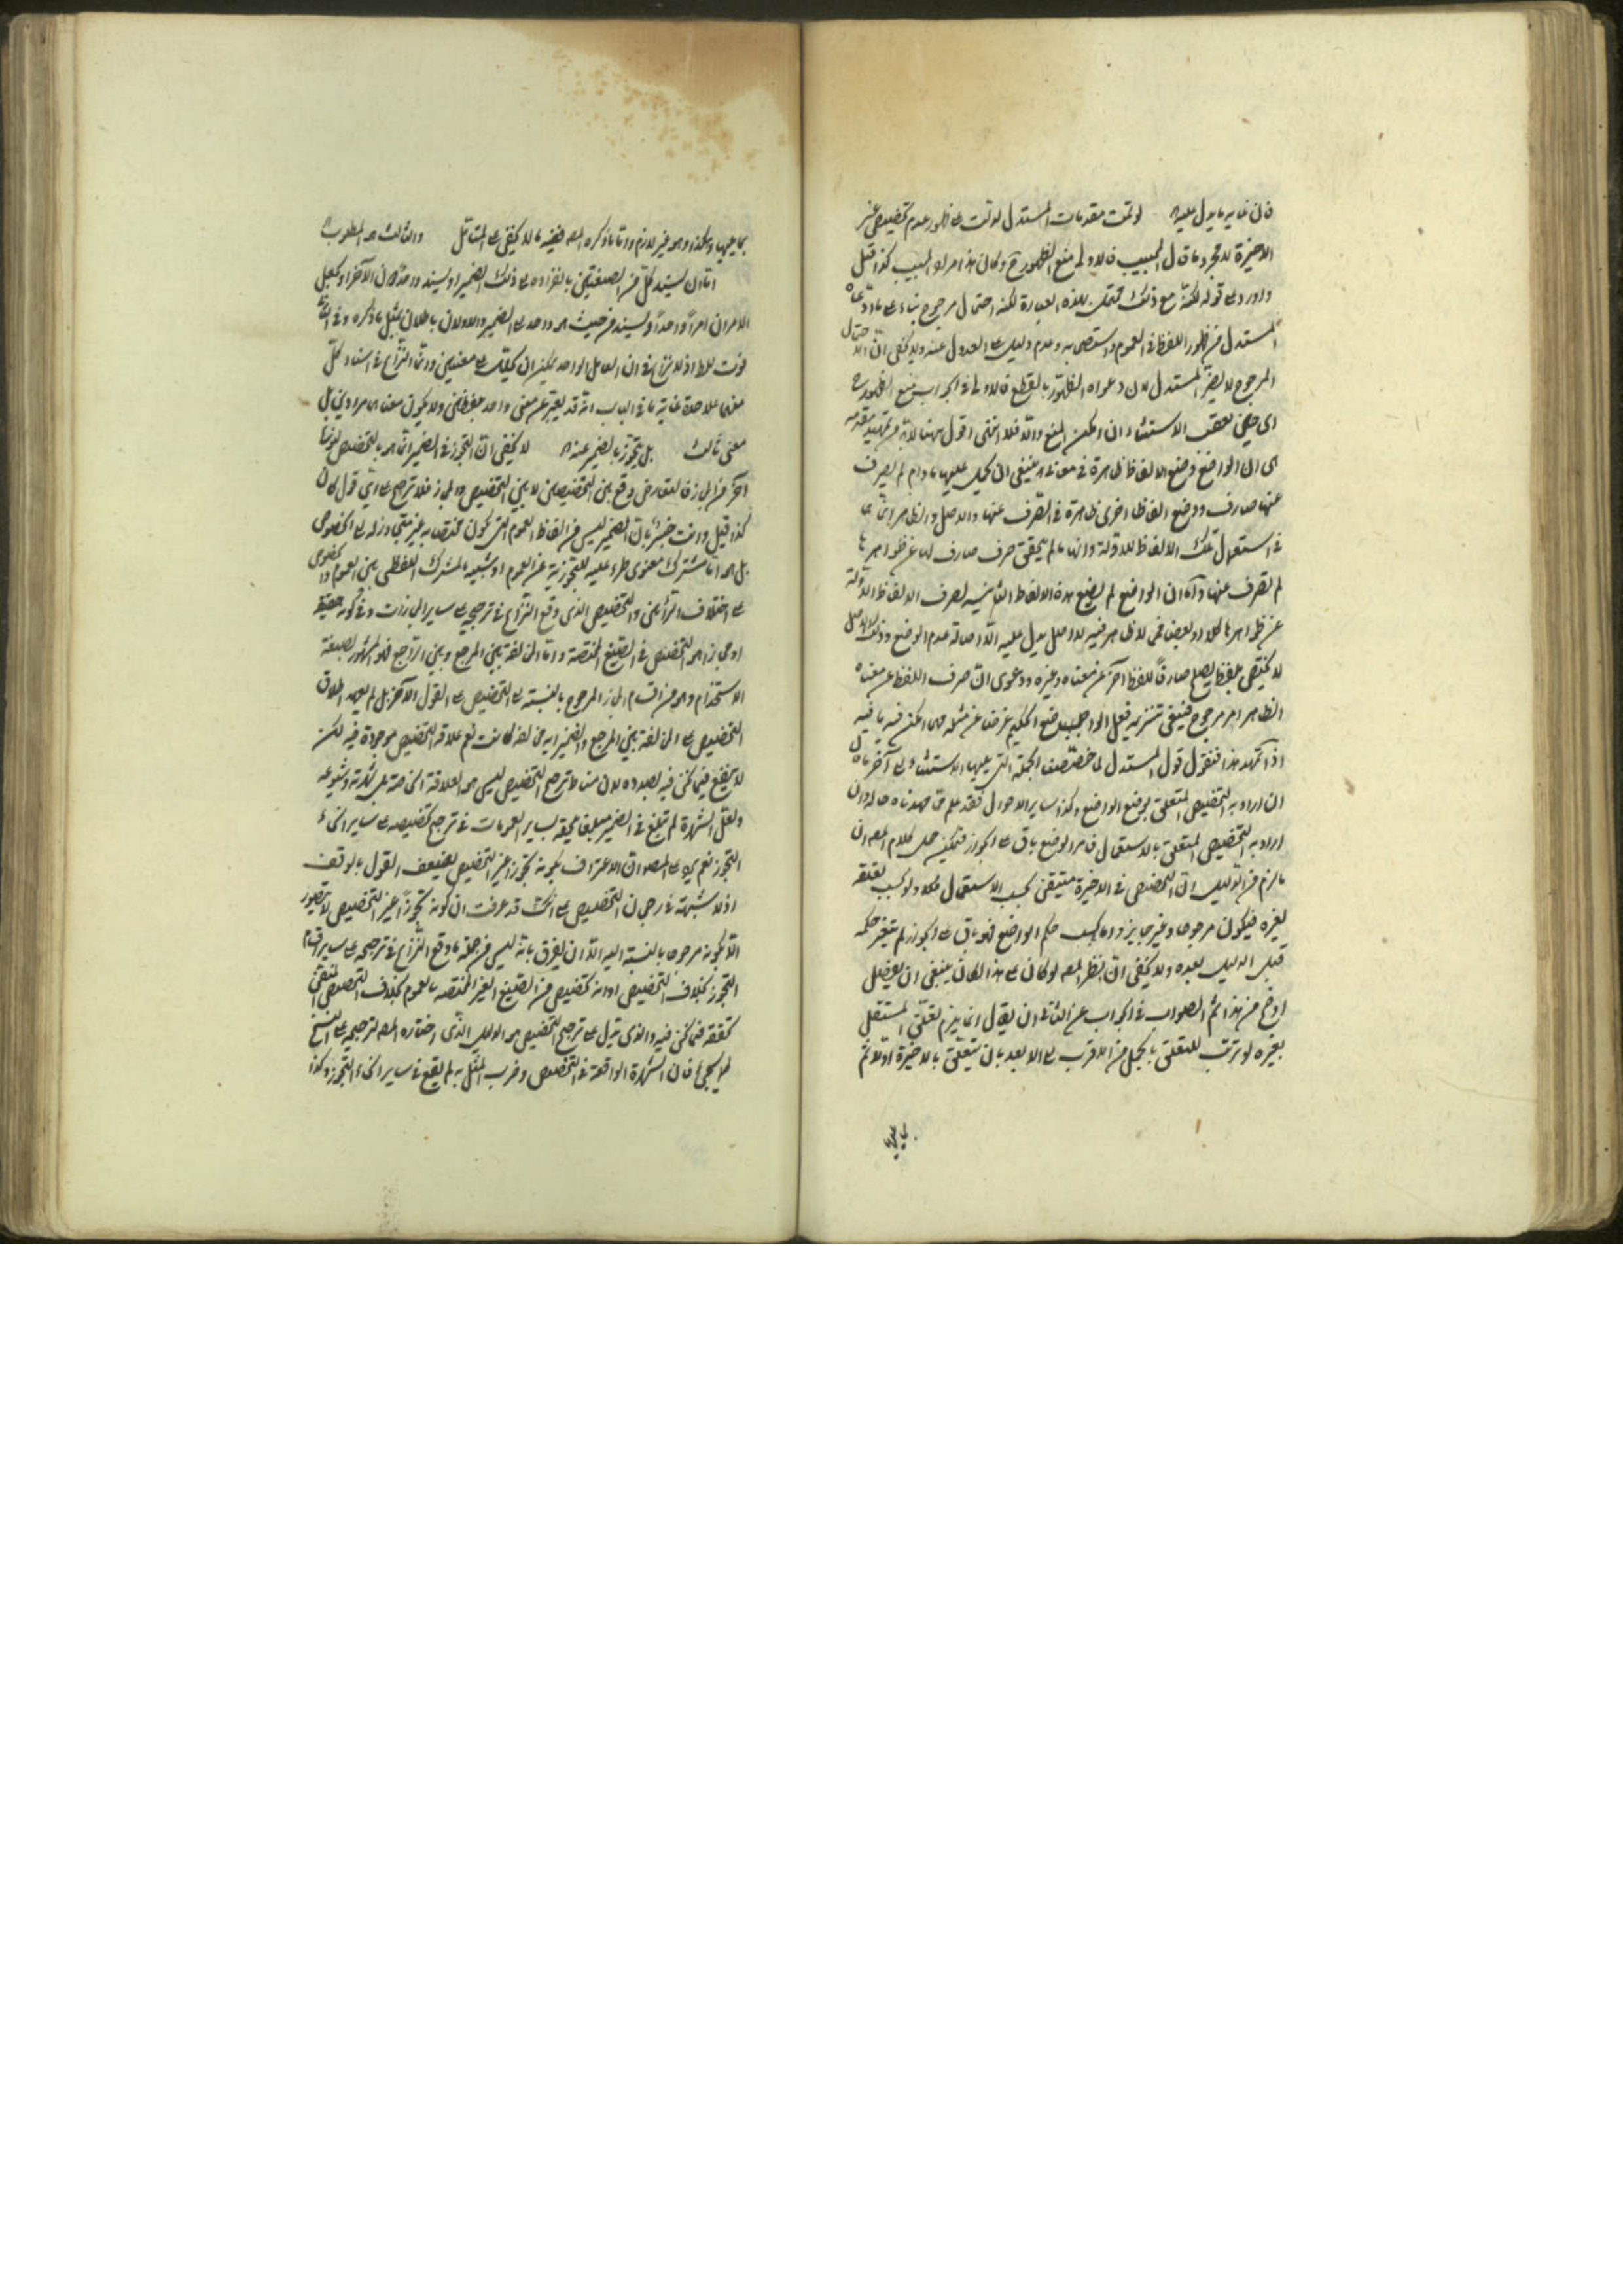 فان غايه ما يدل عليه لو تمت مقدمات المستدل لدلت على ظهور عدم تخصيص غير
الاخيرة لا مجرد ما قال المجيب فالاولى منع الظهور وكان هذا مراد المجيب كذا قيل
واورد على قوله لكنه مع ذلك محتمل بهذه العبارة لكنه احتمال مرجوح بناء على ما ادعاه
المستدل من ظهور اللفظ في العموم واستصحابه وعدم دليل على العدول عنه ولا يخفى ان الاحتمال
المرجوح لا يضر المستدل لان دعواه الظهور لا القطع فالاولى في الجواب منع الظهور
اى حين تعقب الاستثناء ان امكن المنع والا فلا انتهى اقول ههنا لابد من تمهيد مقدمه
هى ان الواضع وضع الالفاظ ظاهرة في معنى ينبغي ان يحمل عليها ما دام لم يصرف
عنها صارف ووضع الفاظا اخرى ظاهرة في الصرف عنها والاصل والظاهر انما هى
في استعمال تلك الالفاظ الاولة وانها ما لم يتحقق صرف صارف لها عن ظواهرها
لم تصرف عنها واما ان الواضع لم يضع هذه الالفاظ الثانيه لصرف الالفاظ الاولة
عن ظواهرها لكل او لبعض فمما لا ظاهر فيه ولا اصل يدل عليه الا اصالة عدم الوضع وذلك الاصل
لا يختص بلفظ يصلح صارفا للفظ آخر عن معناه وغيره ودعوى ان صرف اللفظ عن معناه
الظاهر امر مرجوح فينبغي تنزيه فعل الواضع الحكيم عن مثله مهما امكن فيه ما فيه
اذا تمهد هذا فنقول قول المستدل لما خصصنا الجملة التى يليها الاستثناء الى آخر ما قال
ان اراد به التخصيص المتعلق بوضع الواضع وكذا ساير الاحوال فقد علم مما مهدناه حاله وان
اراد به التخصيص المتعلق بالاستعمال فامر الوضع باق على الجواز فيمكن حمل كلام المصـ ان
ما لزم من الدليل ان التخصيص في الاخيرة متيقن بحسب الاستعمال فكذا ولو بحسب تعلقه
بغيره فيكون مرجوحا وغير جايز واما بحسب حكم الواضع فهو باق على الجواز لم يتغير حكمه
قبل الدليل وبعده ولا يخفى ان نظر المصـ لو كان على هذا لكان ينبغي ان يفصل
اوضح من هذا ثم الصواب في الجواب عن الثاني ان يقال انما يلزم تعلق المستقل
بغيره لو ترتب للتعلق بالجمل من الاقرب الى الابعد بان يتعلق بالاخيرة اولا ثم
بما يليها وهكذا وهو غير لازم واما ما ذكره المصـ ففيه ما لا يخفى على المتأمل والثالث هو المطلوب
اما ان يستند كل من الصفتين بانفراده الى ذلك الضمير او يستند واحد لان الآخر او يجعل
الامران امرا واحدا ويستند من حيث هو واحد الى الضمير والاولان باطلان بمثل ما ذكره وفي الثالث
فوت للمط اذ لا نزاع في ان العامل الواحد يمكن ان يحتمل على معنيين وانما النزاع في اسناد كل
منهما على حدة غاية ما في الباب انه قد يعبر عن معنى واحد بلفظين ولا يكون معناهما مرادين بل
معنى ثالث بل يتجوز بالضمير عنه لا يخفى ان التجوز في الضمير انما هو بالتخصيص لونها
آخر من المجاز فالتعارض وقع بين التخصيصين لا بين التخصيص والمجاز فلا ترجيح على اى قول كان
كذا قيل وانت خبير بان الضمير ليس من الفاظ العموم التى تكون مختصه به غير متجاوزة الى الخصوص
بل هو اما مشترك معنوى طرء عليه التجوز من العموم او شبيه بالمشترك اللفظى بين العموم والخصوص
على اختلاف الرأيين والتخصيص الذى وقع النزاع في ترجيحه على ساير المجازات وفي كونه حقيقة
او مجازا هو التخصيص في الصيغ المختصة واما المخالفة بين المرجع وبين الراجع فهو المشهور بصنعة
الاستخدام وهو من اقسام المجاز المرجوح بالنسبة الى التخصيص على القول الآخر بل لم يعهد اطلاق
التخصيص على المخالفة بين المرجع والضمير اية مخالفة كانت نعم علاقة التخصيص موجودة فيه لكن
لا ينفع فيما نحن فيه بصدده لان مناط ترجيح التخصيص ليس هو العلاقة الخاصة بل شهرته وشيوعه
ولعل الشهرة لم تبلغ في الضمير مبلغا يلحقه بساير العمومات في ترجيح تخصيصه على ساير انحاء
التجوز نعم يرد على المصـ ان الاعتراف بكونه تجوزا غير التخصيص يضعف القول بالوقف
اذ لا شبهة في رجحان التخصيص على ذلك قد عرفت ان كونه تجوزا غير التخصيص لا يتصور
الا بكونه مرجوحا بالنسبة اليه الا ان يفرق بانه ليس من جملة ما وقع النزاع في ترجيحه على ساير اقسام
التجوز بخلاف التخصيص او انه تخصيص من الصيغ الغير المختصه بالعموم بخلاف التخصيص المتفق
تحققه فيما نحن فيه والذى يدل على ترجيح التخصيص هو الدليل الذى اختاره المصـ لترجيحه على النسخ
كما سيجئ فان الشهرة الواقعة في التخصيص وضرب المثل به لم يقع في ساير انحاء التجوز وكذا